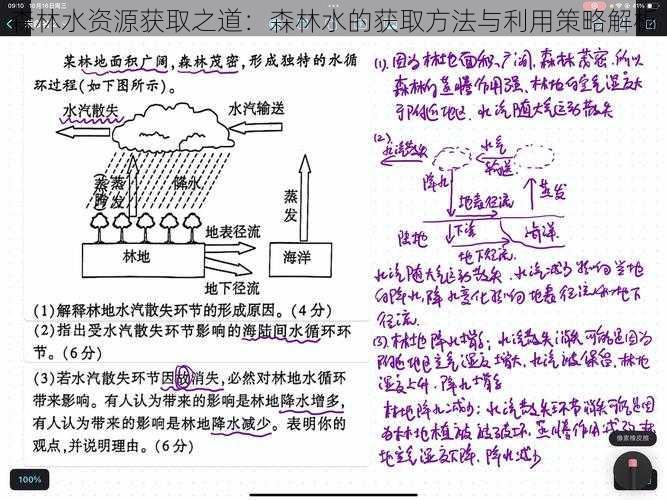 森林水资源获取之道：森林水的获取方法与利用策略解析
09:10 10月16日周三
91%
某林地面积广阔，森林茂密，形成独特的水循
环过程(如下图所示)。
水汽散失
水汽输送
(蒸腾)
蒸发
降水
蒸发
地表径流
林地
海洋
地下径流
(1)解释林地水汽散失环节的形成原因。(4分)
(2)指出受水汽散失环节影响的海陆间水循环环
节。(6分)
(3)若水汽散失环节因故消失，必然对林地水循环
带来影响。有人认为带来的影响是林地降水增多，
有人认为带来的影响是林地降水减少。表明你的
观点，并说明理由。(6分)
100%
(1).因为林地面积广阔,森林茂密.所以
森林的蒸腾作用强、林地的空气湿度大
于附近地区.水汽随大气运动散失
(2)
水汽散失
水汽
输送
降水
地表径流
蒸发
陆地
下渗
海洋
地下径流
水汽随大气运动散失.水汽减少影响当地
的降水,降水变化影响地表径流和地下
径流.
(3).林地降水增多:水汽散失消失可能是因为
附近地区空气湿度增大,水汽被保留,林地
湿度上升.降水增多
林地降水减少:水汽散失环节消失可能是因
为林地植被被破坏,蒸腾作用减弱,林
地空气湿度下降.降水减少
像素橡皮擦